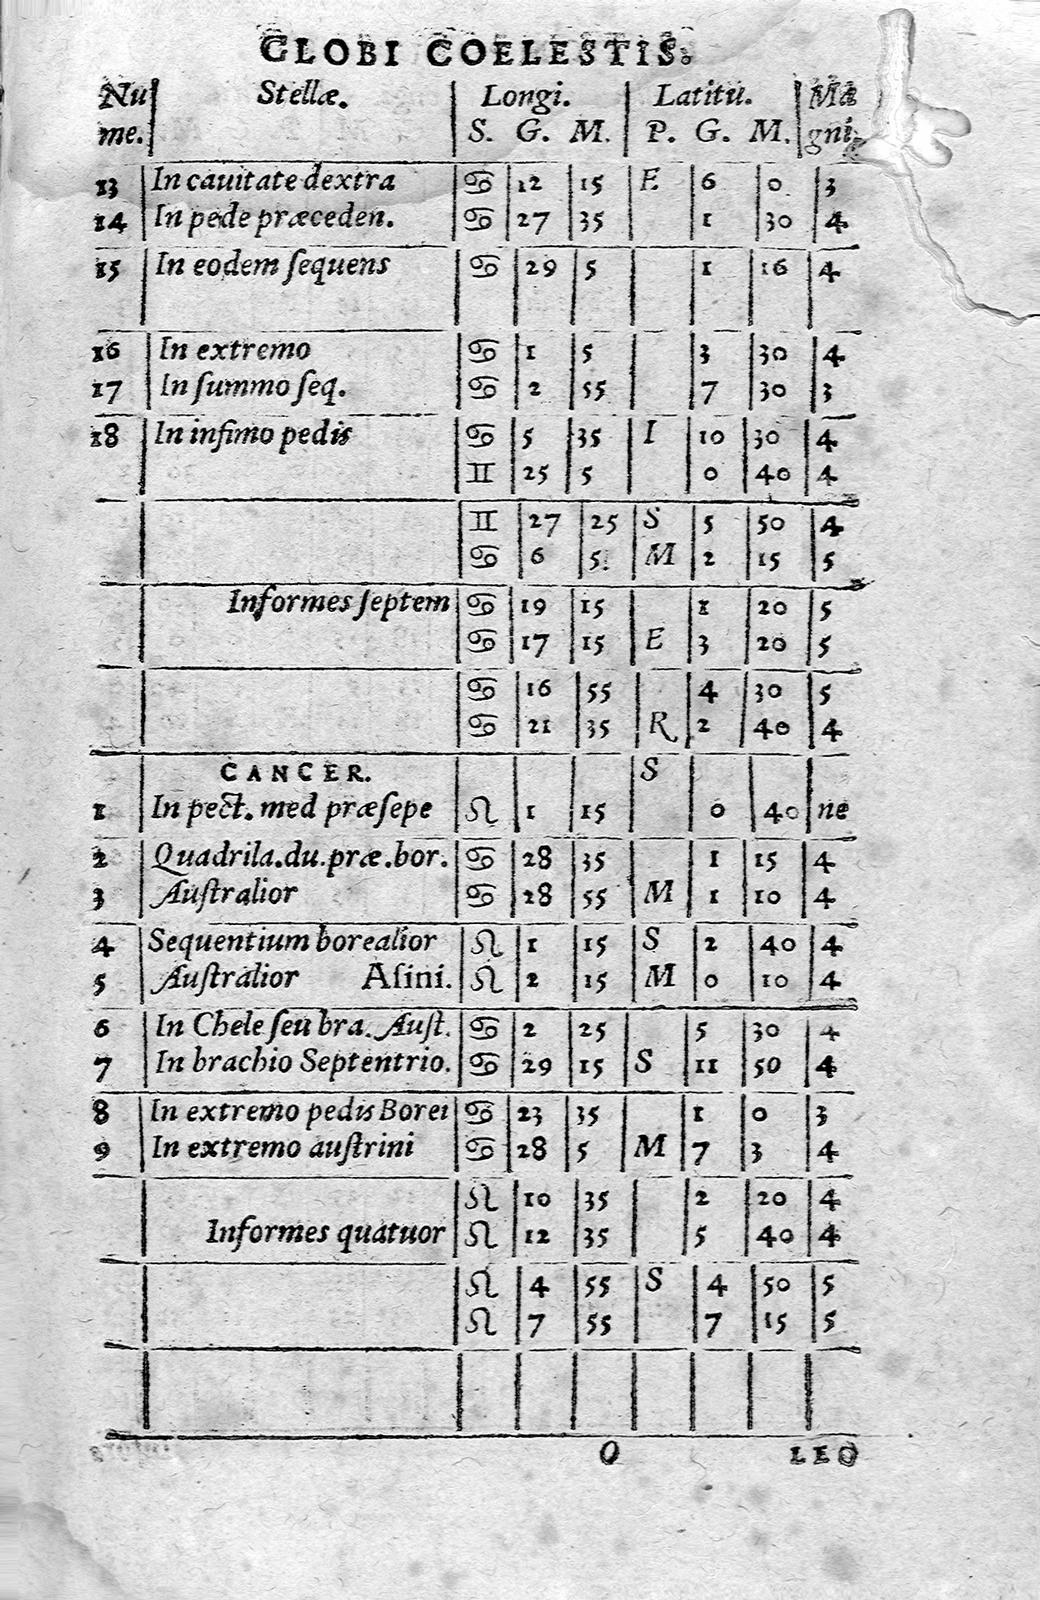 GLOBI COELESTIS.
Nu Stellæ. Longi. Latitu. Ma
me. S. G. M. P. G. M. gni.
13 In cauitate dextra ♋ 12 15 E 6 0 3
14 In pede præceden. ♋ 27 35 1 30 4
15 In eodem ſequens ♋ 29 5 1 16 4
16 In extremo ♋ 1 5 3 30 4
17 In ſummo ſeq. ♋ 2 55 7 30 3
18 In infimo pedis ♋ 5 35 I 10 30 4
♊ 25 5 0 40 4
♊ 27 25 S 5 50 4
♋ 6 5. M 2 15 5
Informes ſeptem ♋ 19 15 1 20 5
♋ 17 15 E 3 20 5
♋ 16 55 4 30 5
♋ 21 35 R 2 40 4
CANCER. S
1 In pect. med præſepe ♌ 1 15 0 40 ne
2 Quadrila.du.præ.bor. ♋ 28 35 1 15 4
3 Auſtralior ♋ 28 55 M 1 10 4
4 Sequentium borealior ♌ 1 15 S 2 40 4
5 Auſtralior Aſini. ♌ 2 15 M 0 10 4
6 In Chele ſeu bra. Auſt. ♋ 2 25 5 30 4
7 In brachio Septentrio. ♋ 29 15 S 11 50 4
8 In extremo pedis Borei ♋ 23 35 1 0 3
9 In extremo auſtrini ♋ 28 5 M 7 3 4
♌ 10 35 2 20 4
Informes quatuor ♌ 12 35 5 40 4
♌ 4 55 S 4 50 5
♌ 7 55 7 15 5
O LEO